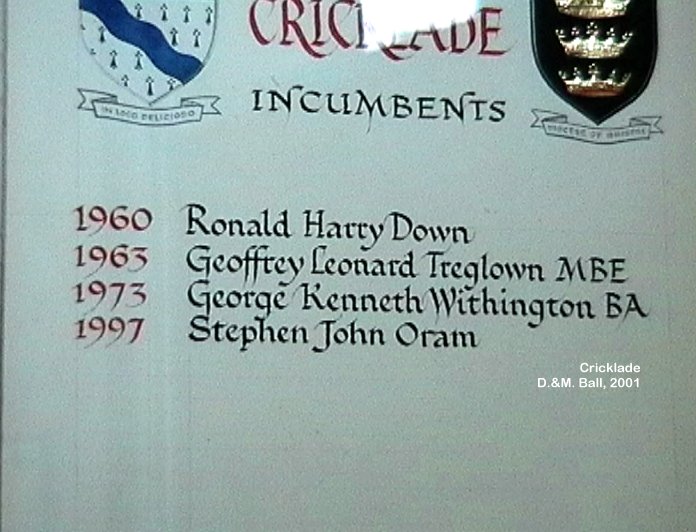 CRICKLADE
IN LOCO DELICIOSO
INCUMBENTS
DIOCESE OF BRISTOL
1960 Ronald Harry Down
1963 Geoffrey Leonard Treglown MBE
1973 George Kenneth Withington BA
1997 Stephen John Oram
Cricklade
D.&M. Ball, 2001